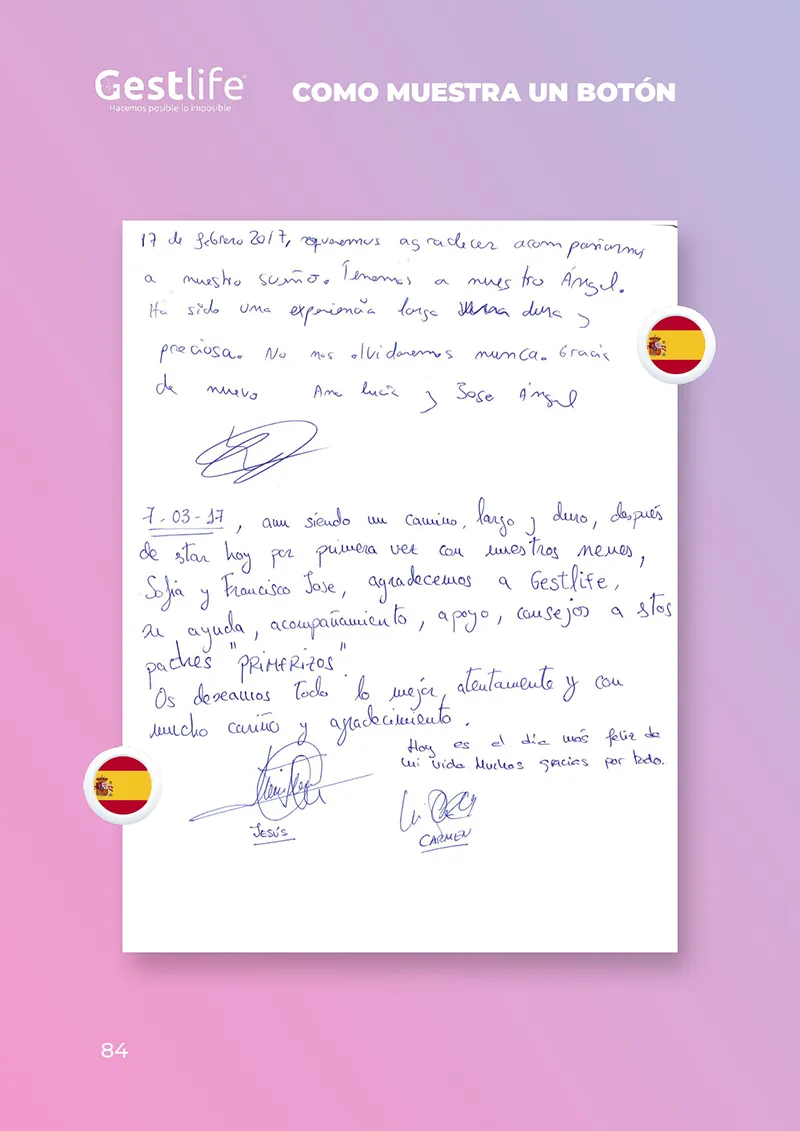 Gestlife
Hacemos posible lo imposible
COMO MUESTRA UN BOTÓN
17 de febrero 2017, queremos agradecer acompañarnos
a nuestro sueño. Tenemos a nuestro Ángel.
Ha sido una experiencia larga dura y
preciosa. No nos olvidaremos nunca. Gracias
de nuevo Ana Lucia y Jose Ángel
7-03-17, aun siendo un camino, largo y duro, después
de star hoy por primera vez con nuestros nenes,
Sofia y Francisco Jose, agradecemos a Gestlife,
su ayuda, acompañamiento, apoyo, consejos a stos
padres "PRIMERIZOS".
Os deseamos todo lo mejor, atentamente y con
mucho cariño y agradecimiento.
Hoy es el día más feliz de
mi vida. Muchas gracias por todo.
JESÚS
CARMEN
84